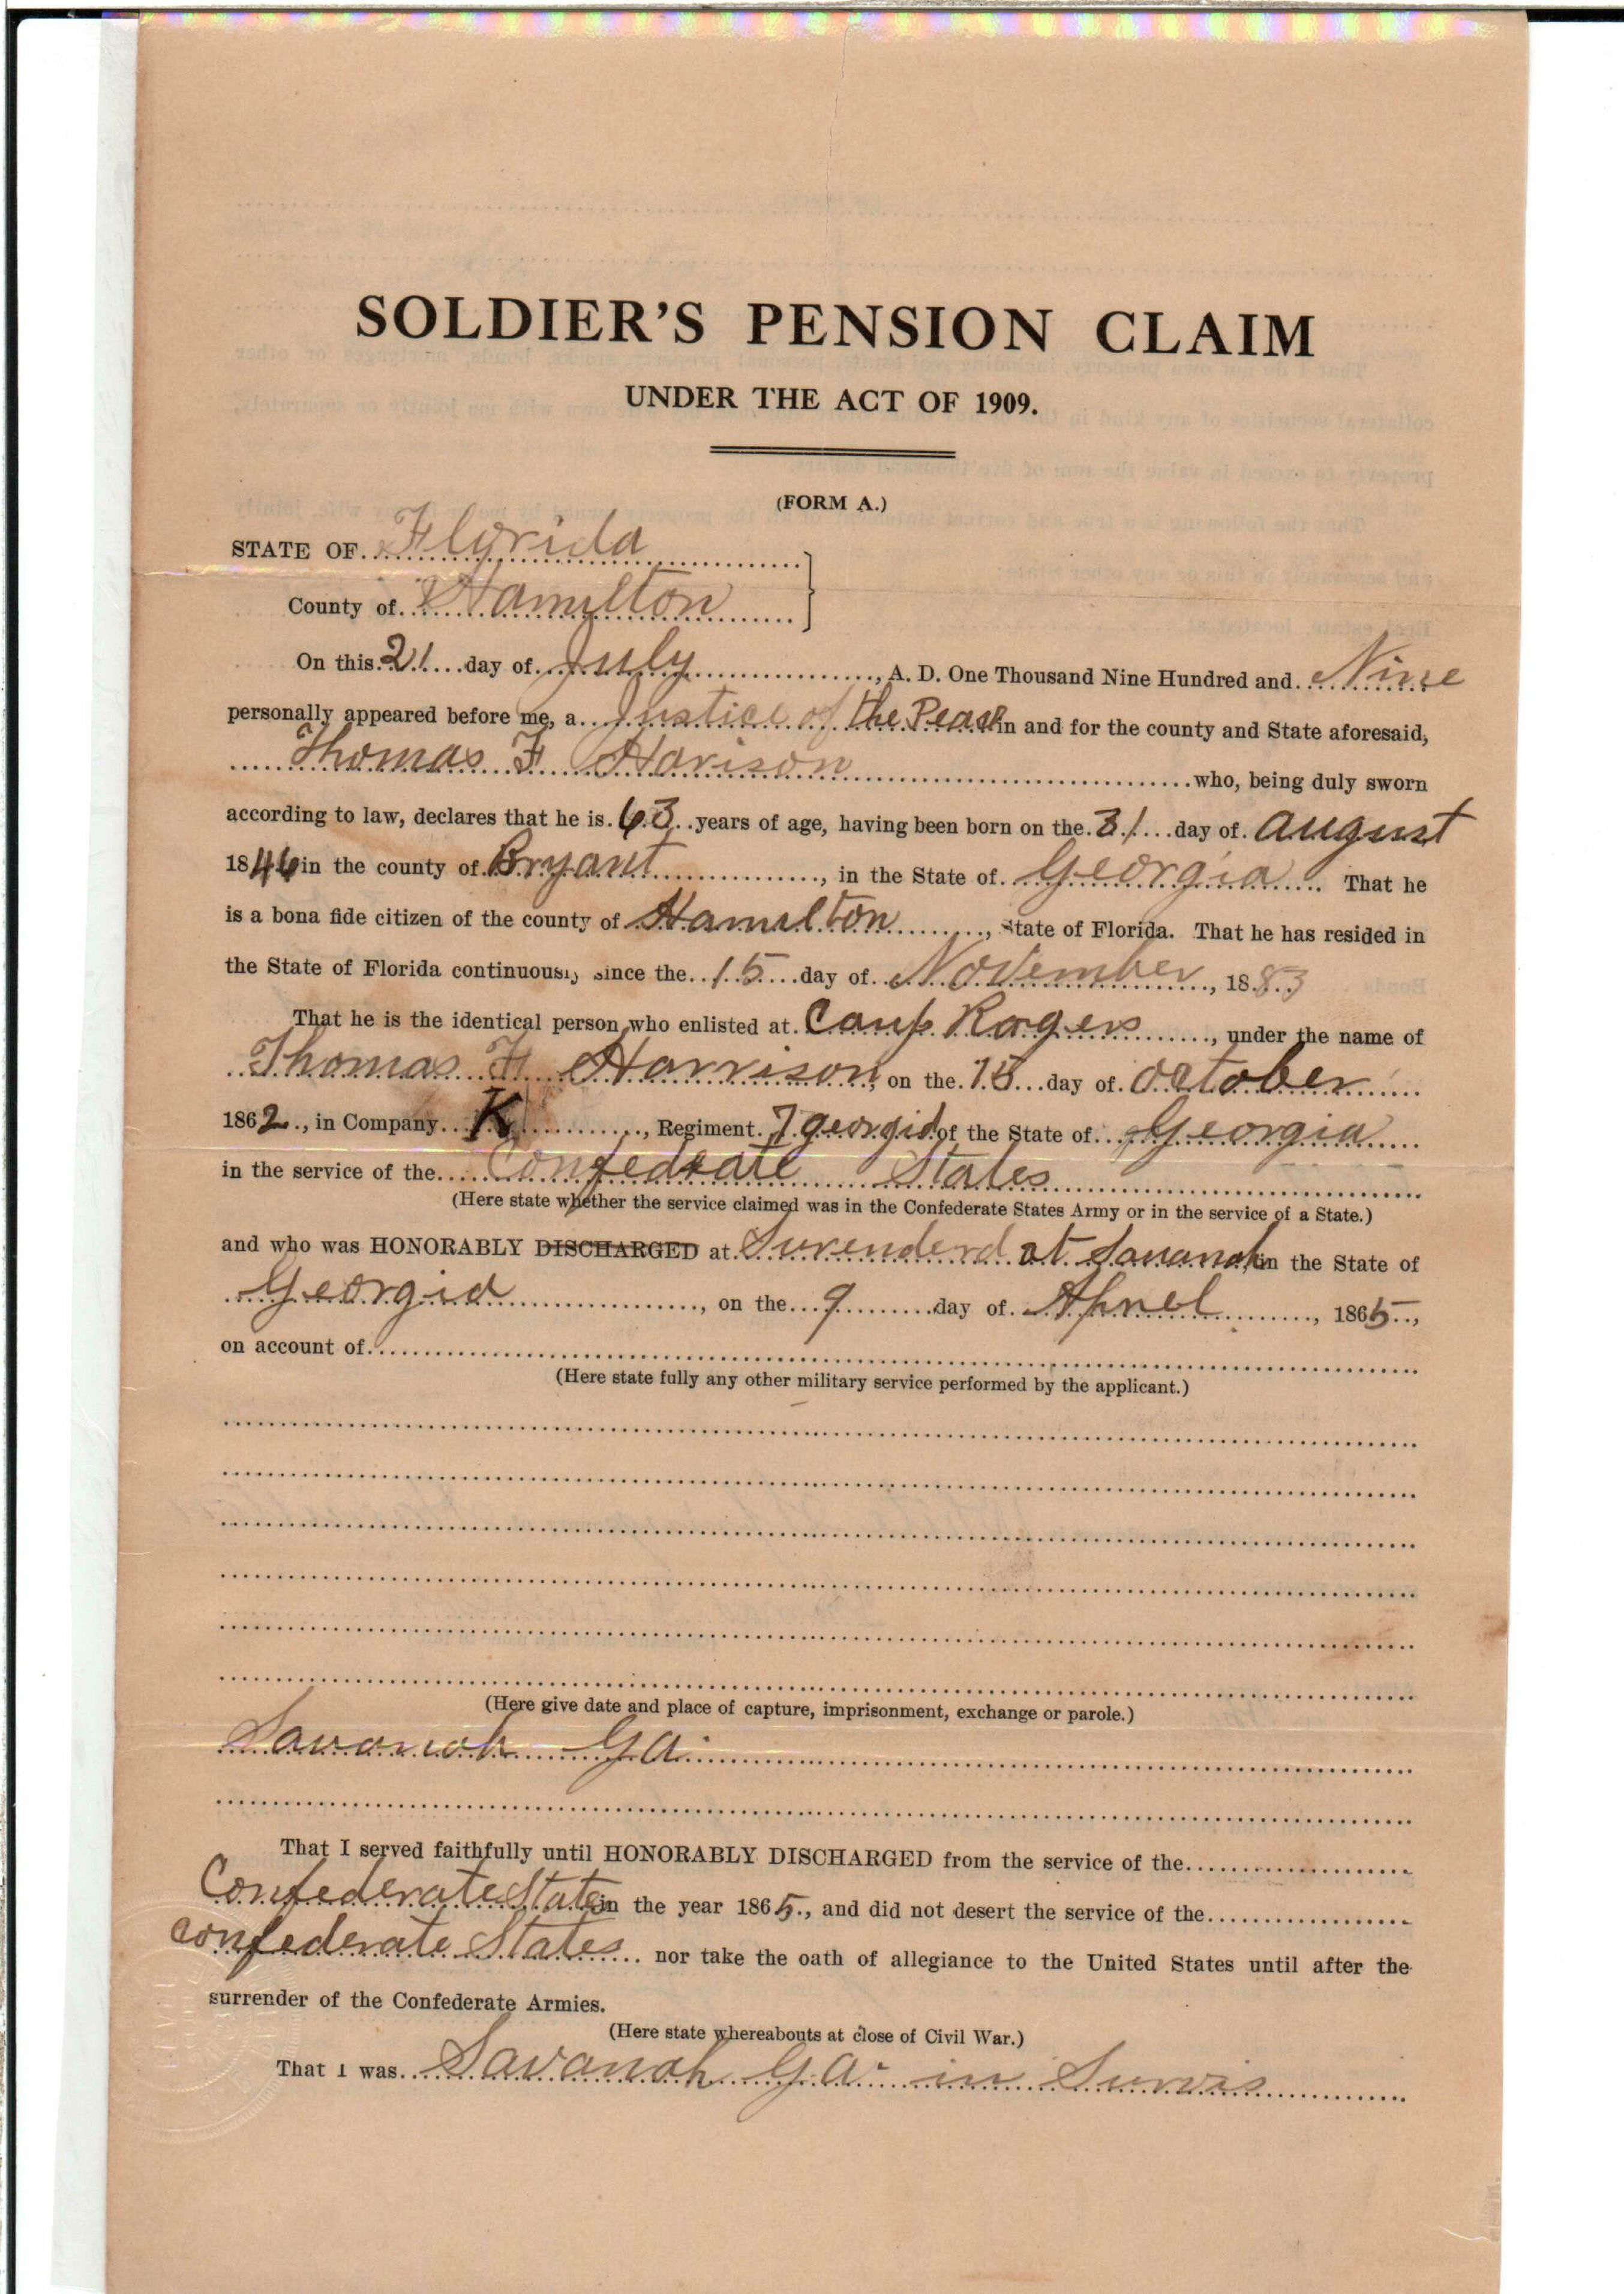 SOLDIER'S PENSION CLAIM
UNDER THE ACT OF 1909.
(FORM A.)
STATE OF Florida
County of Hamilton
On this 21 day of July, A. D. One Thousand Nine Hundred and Nine
personally appeared before me, a Justice of the Peace in and for the county and State aforesaid,
Thomas F Harison who, being duly sworn
according to law, declares that he is 63 years of age, having been born on the 31 day of August
1846 in the county of Bryant, in the State of Georgia. That he
is a bona fide citizen of the county of Hamilton, State of Florida. That he has resided in
the State of Florida continuously since the 15 day of November, 1883
That he is the identical person who enlisted at Camp Rogers, under the name of
Thomas F Harrison, on the 15 day of October
1862, in Company K, Regiment 7 georgia of the State of Georgia
in the service of the Confedrate States
(Here state whether the service claimed was in the Confederate States Army or in the service of a State.)
and who was HONORABLY DISCHARGED at Surenderd at Savanah in the State of
Georgia, on the 9 day of Aprel, 1865,
on account of
(Here state fully any other military service performed by the applicant.)
(Here give date and place of capture, imprisonment, exchange or parole.)
Savanah GA
That I served faithfully until HONORABLY DISCHARGED from the service of the
Confederate States in the year 1865, and did not desert the service of the
Confederate States nor take the oath of allegiance to the United States until after the
surrender of the Confederate Armies.
(Here state whereabouts at close of Civil War.)
That I was Savanah GA in Survis